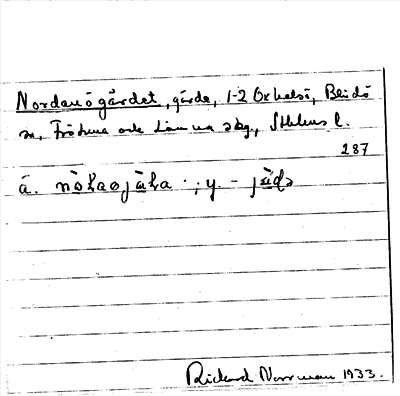 Nordanögärdet, gärde, 1-2 Oxhalsö, Blidö
sn, Frötuna och Länna skg., Sthlms l.
287
ä.
; y. -
Rickard Norrman 1933.